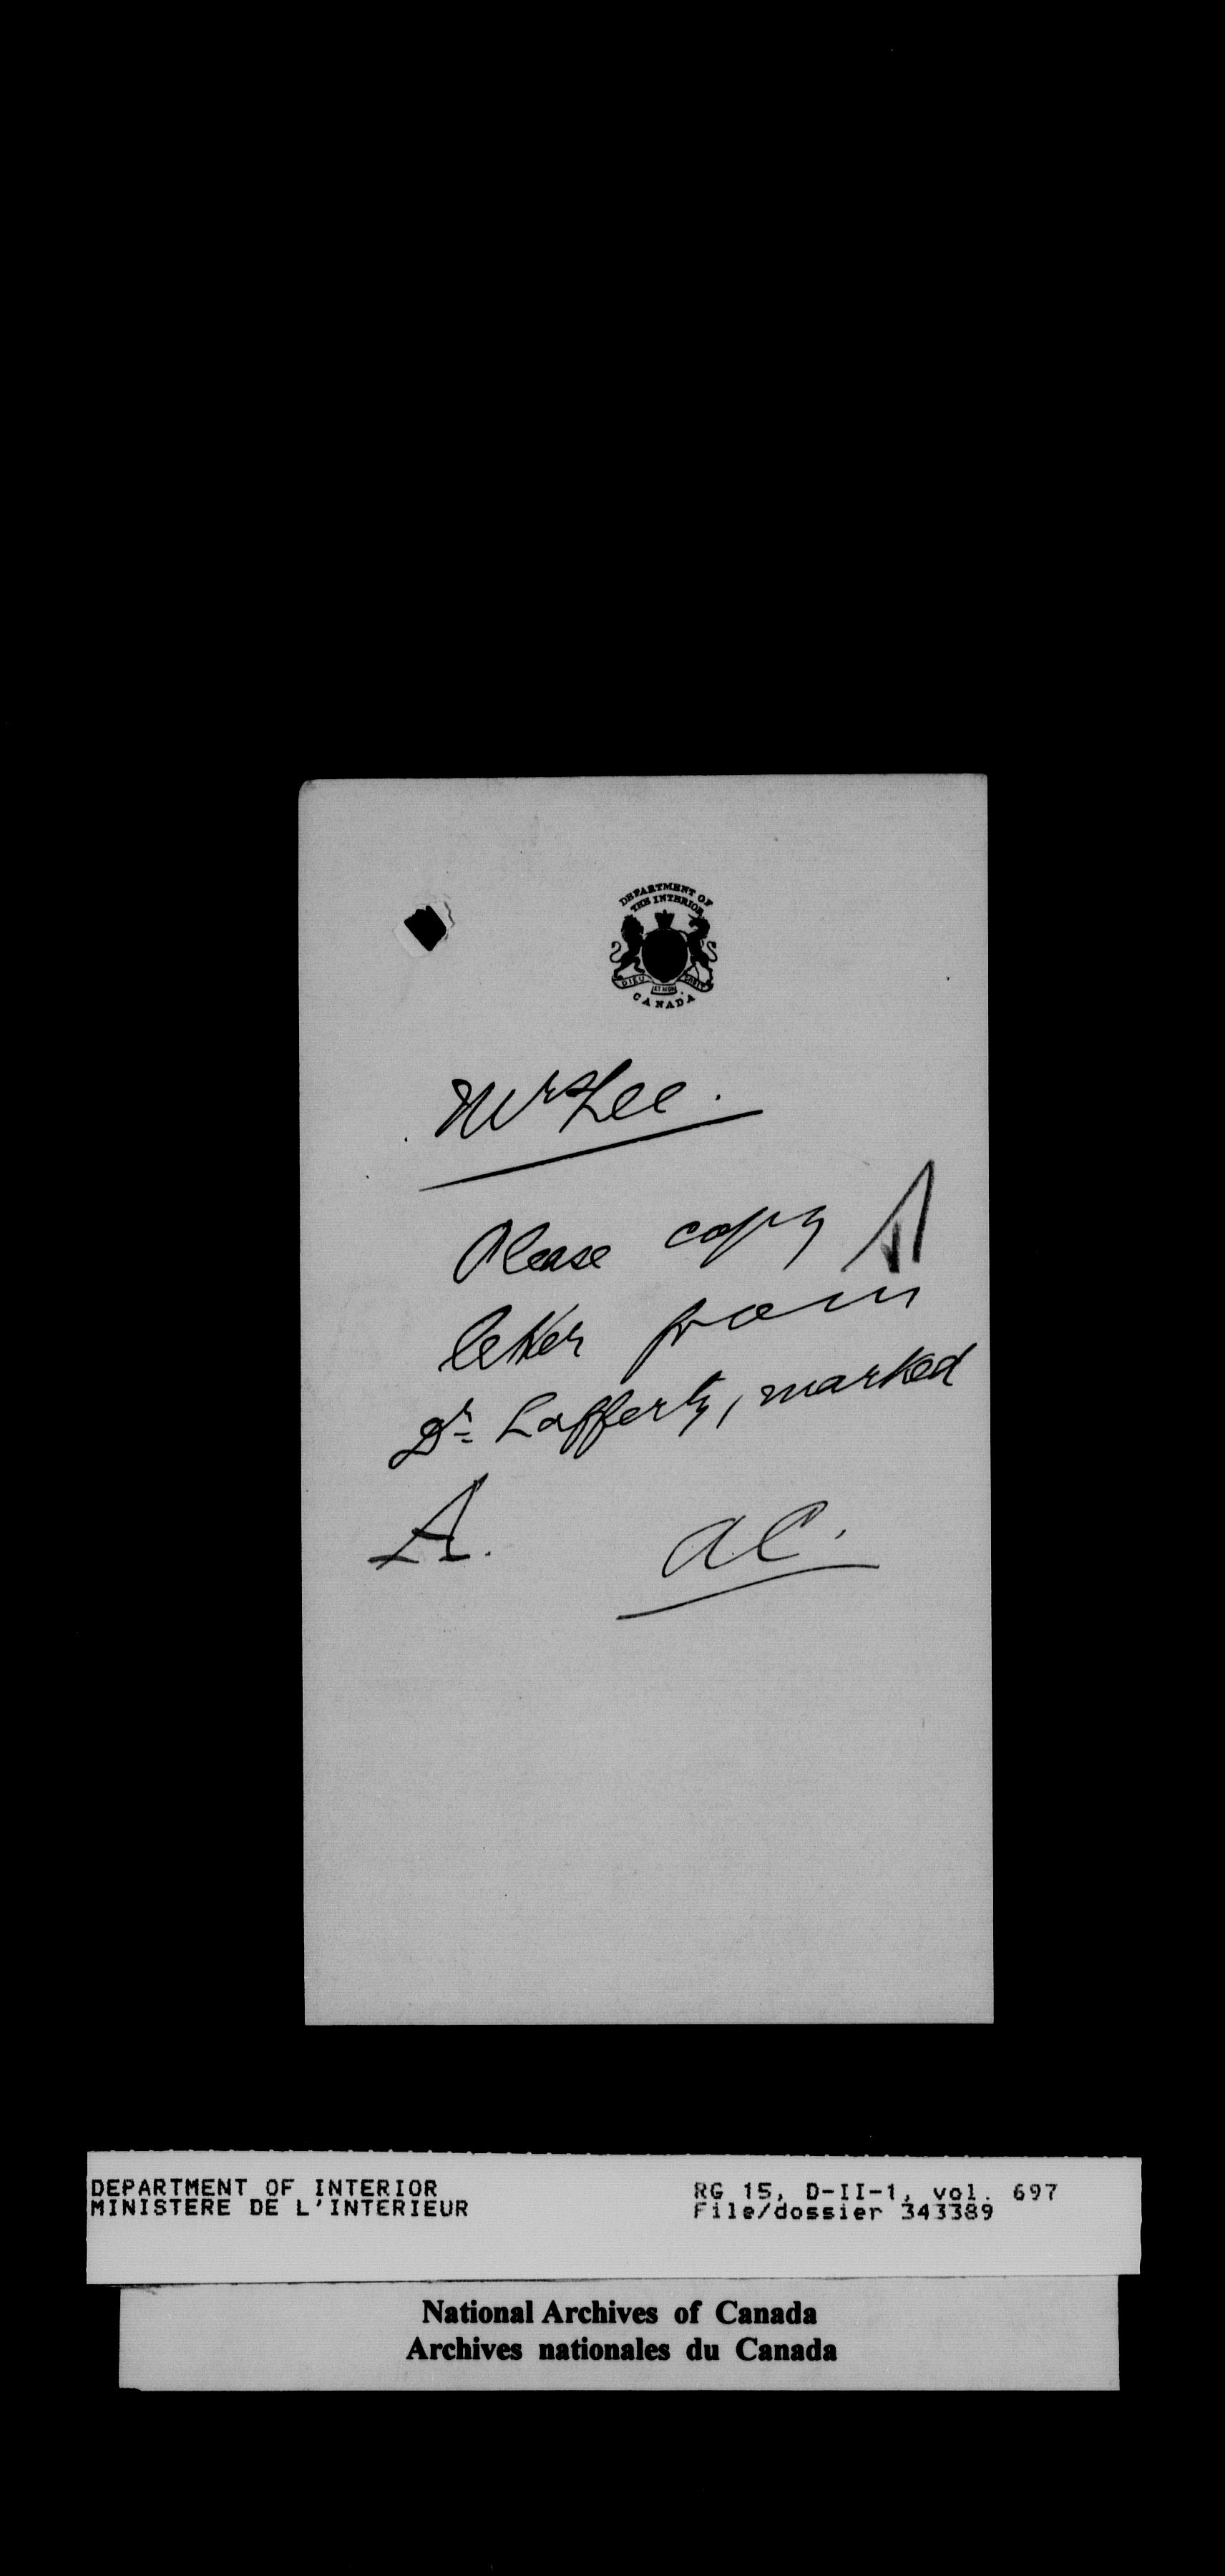 DEPARTMENT OF
THE INTERIOR
DIEU ET MON DROIT
CANADA
Mr Lee.
Please copy
letter from
Dr Lafferty, marked
A.
A.C.
DEPARTMENT OF INTERIOR RG 15, D-II-1, vol. 697
MINISTERE DE L'INTERIEUR File/dossier 343389
National Archives of Canada
Archives nationales du Canada